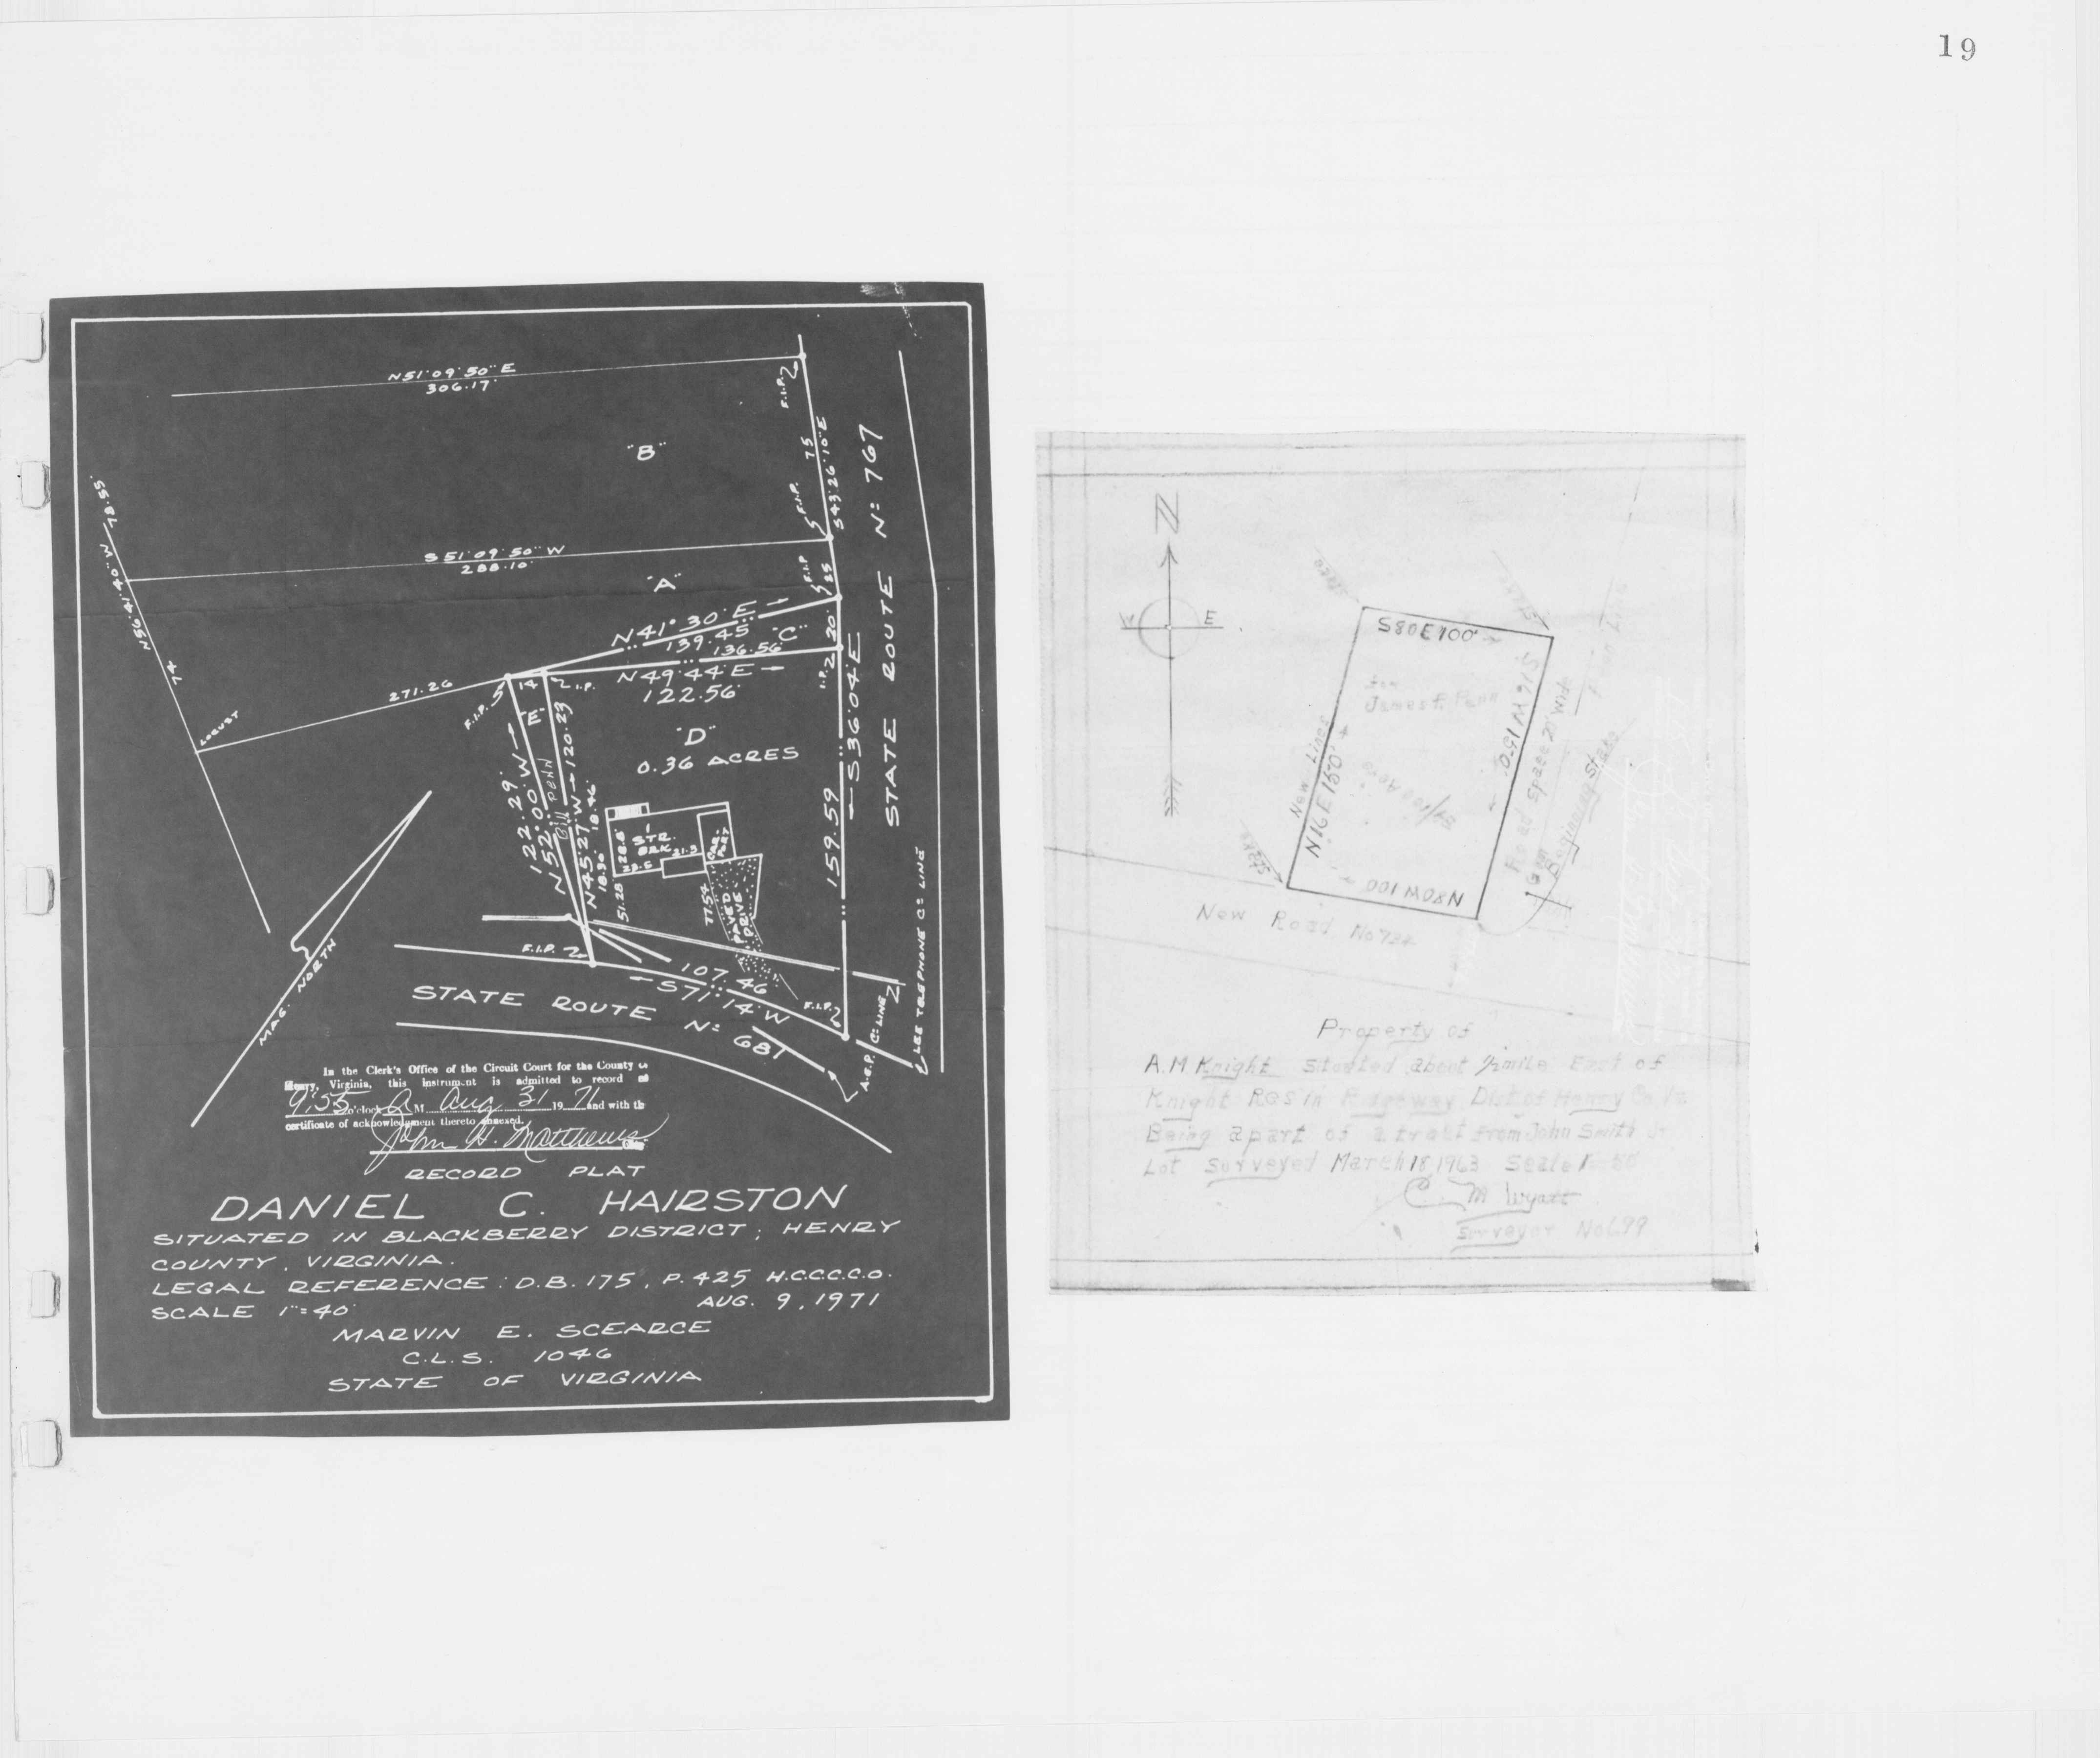 19
N51°09'50"E
306.17'
F.I.P.
75
S43°26'10"E
"B"
F.I.P.
STATE ROUTE No 767
78.55'
N56°41'40"W
74
S51°09'50"W
288.10'
"A"
F.I.P.
25
N41°30'E
139.45'
"C"
136.56'
20'
I.P.
N49°44'E
122.56'
271.26
LOCUST
F.I.P.
14'
I.P.
"E"
"D"
0.36 ACRES
122.29'
N52°00'W
Bill Penn
N45°27'W
120.23
18.46'
18.30
51.28
1
STR.
BRK
28.8
21.3
CAR
PORT
77.54
PAVED
DRIVE
159.59
S36°04'E
LEE TELEPHONE C= LINE
A.E.P. C= LINE
F.I.P.
107.46
S71°14'W
F.I.P.
STATE ROUTE No 681
MAG. NORTH
In the Clerk's Office of the Circuit Court for the County
Henry, Virginia, this instrument is admitted to record
9:55 o'clock A M Aug 31 1971 and with
certificate of acknowledgment thereto annexed.
John H. Matthews
RECORD PLAT
DANIEL C. HAIRSTON
SITUATED IN BLACKBERRY DISTRICT; HENRY
COUNTY, VIRGINIA.
LEGAL REFERENCE: D.B. 175, P. 425 H.C.C.C.O.
SCALE 1"=40' AUG. 9, 1971
MARVIN E. SCEARCE
C.L.S. 1046
STATE OF VIRGINIA
N
W E
Stake
S80E100'
for
James F. Penn
New Lines
N16E150'
S16W150'
Road Space 20' Wide
Beginning Stake
N80W100
New Road No 722
Property of
A.M Knight Situated about 1/2 mile East of
Knight Res in Ridgeway Dist of Henry Co Va
Being a part of a tract from John Smith Jr
Lot Surveyed March 18, 1963 Scale 1"=50'
C. M Wyatt
Surveyor No 699